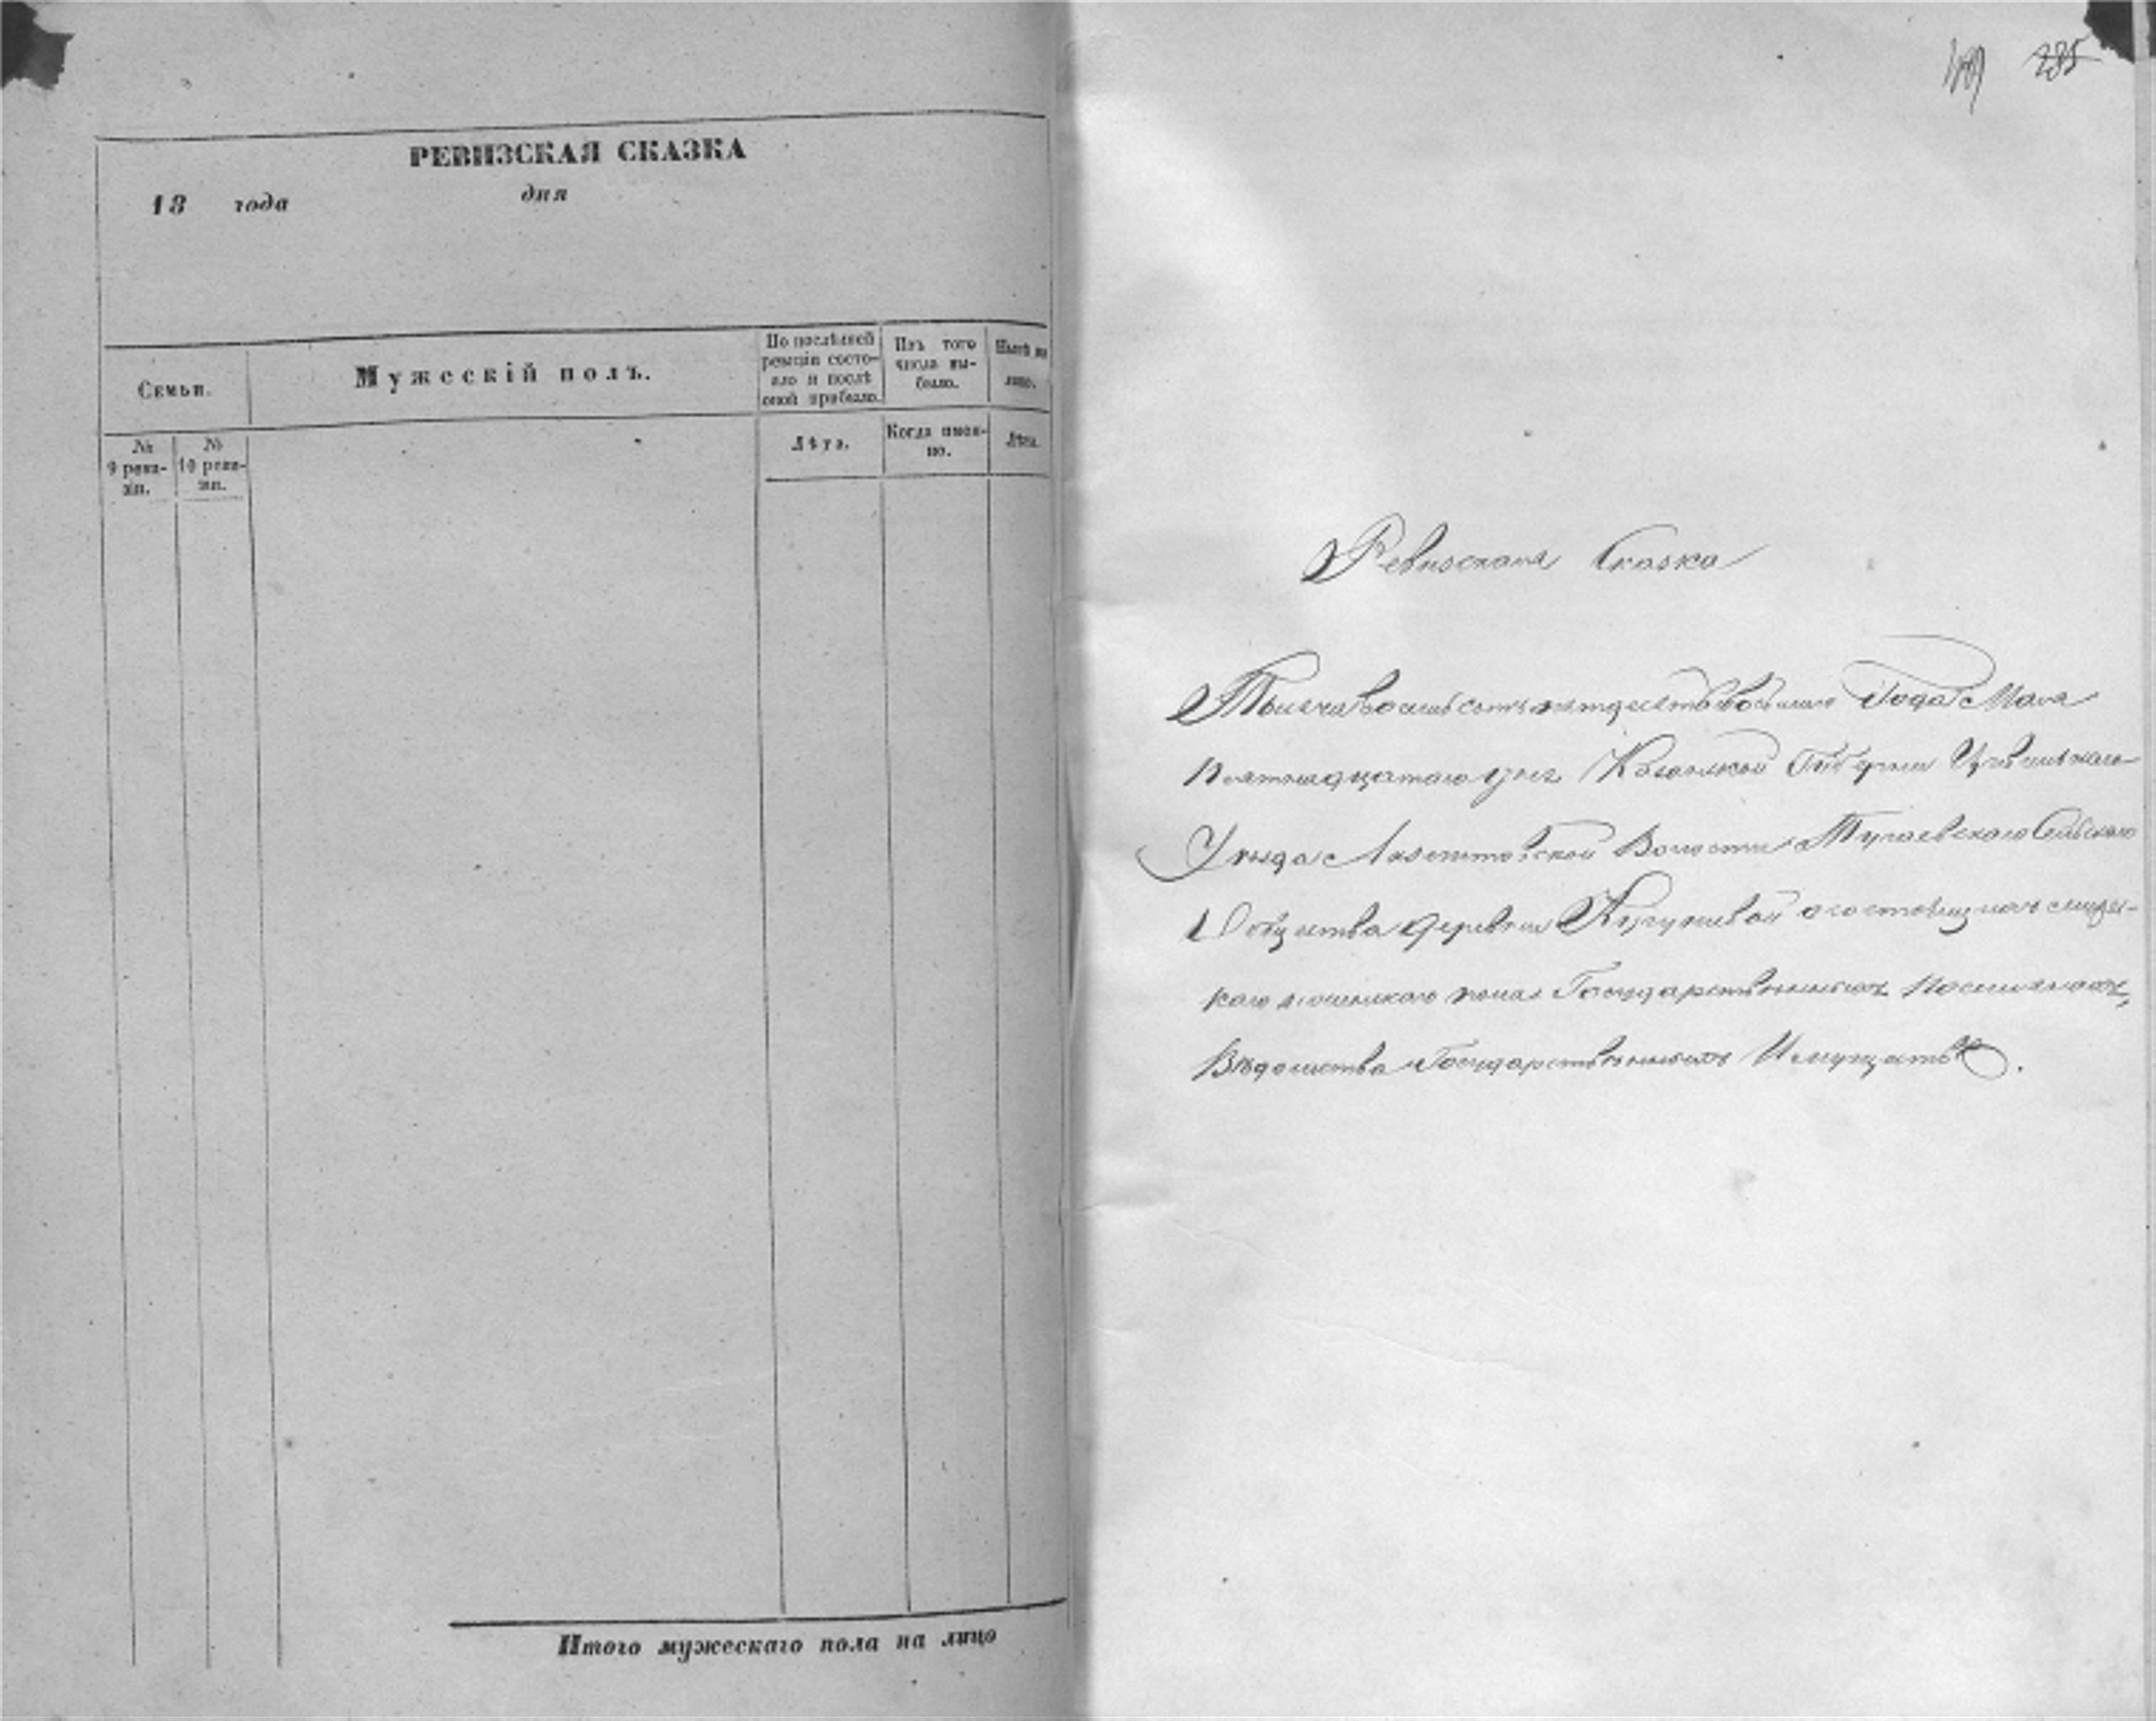 РЕВИЗСКАЯ СКАЗКА
18 года дня
Семьи.
Мужескій полъ.
По послѣдней
ревизіи состо-
яло и послѣ
оной прибыло.
Изъ того
числа вы-
было.
Нынѣ на
лицо.
№
9 реви-
зіи.
№
10 реви-
зіи.
Лѣта.
Когда имен-
но.
Лѣта.
Итого мужескаго пола на лицо
285
Ревизская Сказка
Тысяча восемьсотъ пятдесятъ восьмаго Года Мая
Пятнадцатаго дня Казанской Губерніи Цивильскаго
Уѣзда Волости Тугаевскаго Сельскаго
Общества деревни о состоящихъ мужес-
каго и женскаго пола Государственныхъ Поселянахъ,
Вѣдомства Государственныхъ Имуществъ.